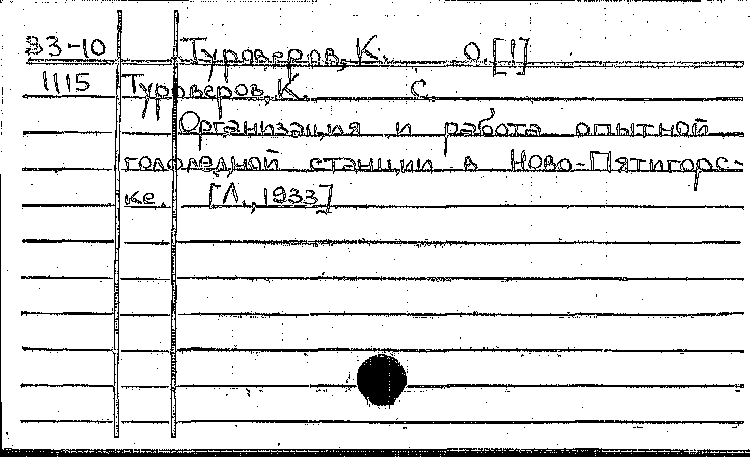 33-10 Туроверов, К. О. [1]
1115 Туроверов, К. С.
Организация и работа опытной
гололедной станции в Ново-Пятигорс-
ке. [Л., 1933]